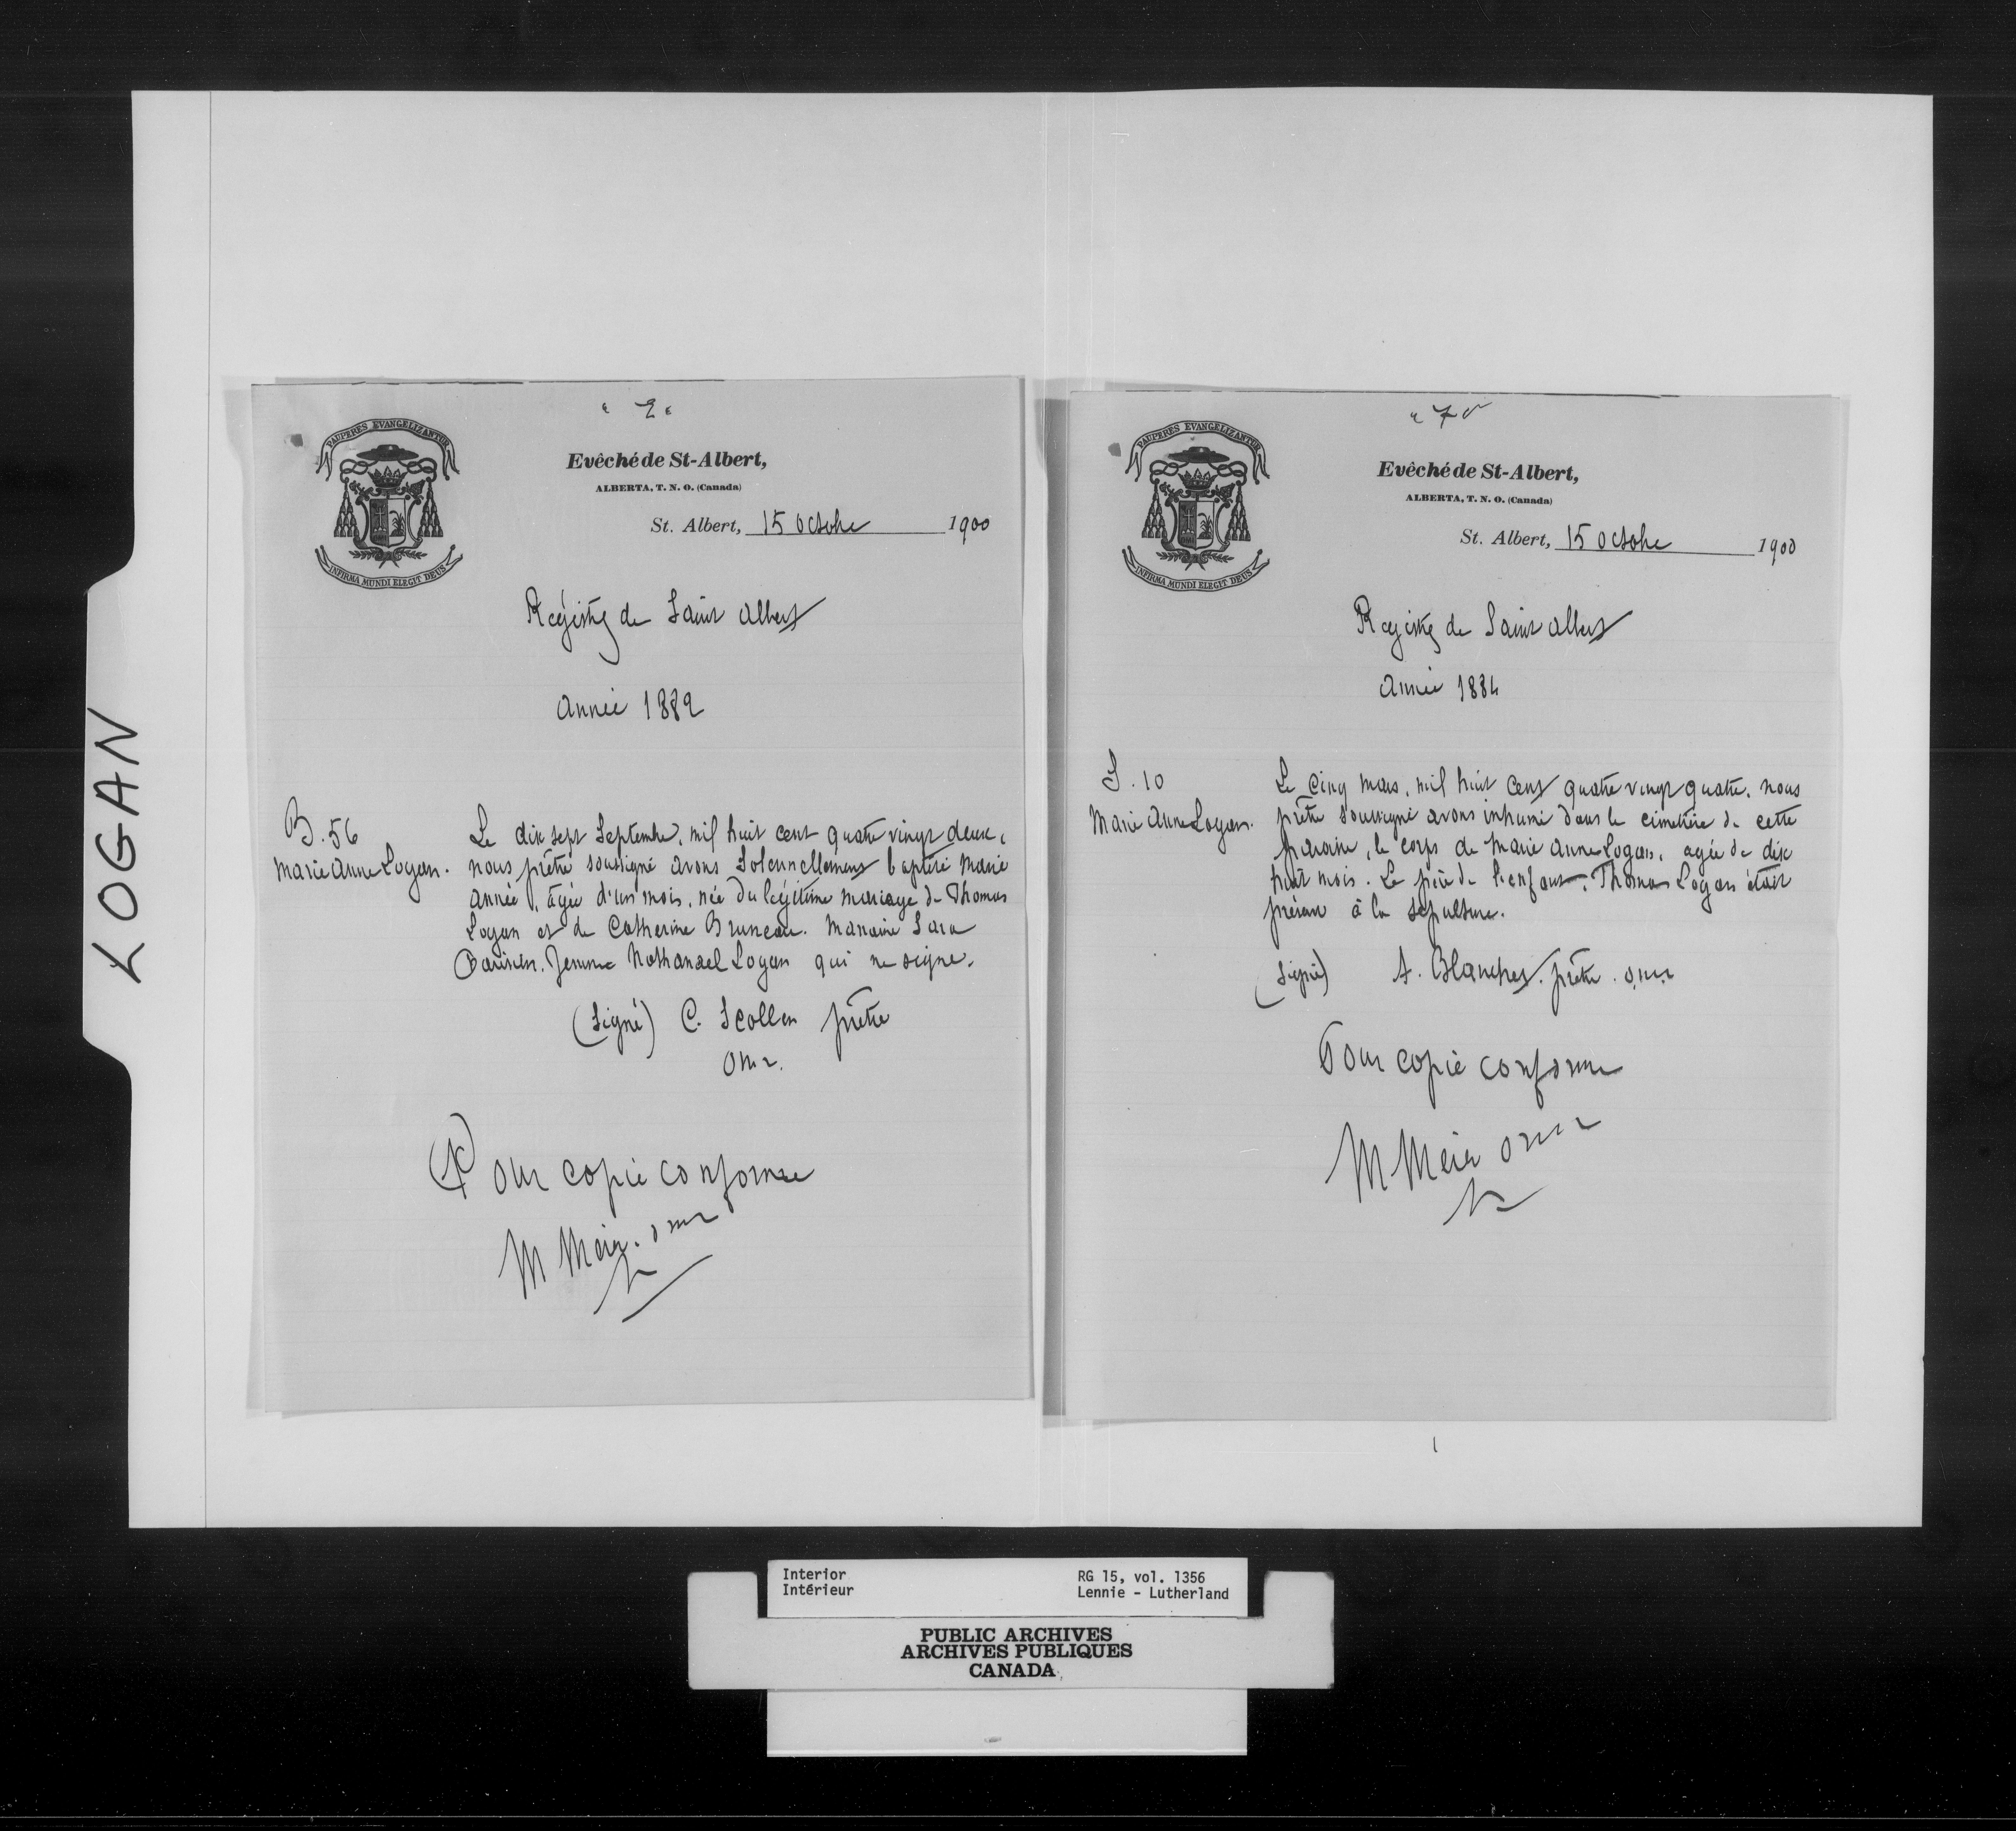 LOGAN
" 2 "
PAUPERES EVANGELIZANTUR
INFIRMA MUNDI ELEGIT DEUS
Evêché de St-Albert,
ALBERTA, T. N. O. (Canada)
St. Albert, 15 Octobre 1900
Régistre de Saint Albert
Année 1882
B. 56
Marie Anne Logan.
Le dix sept Septembre, mil huit cent quatre vingt deux,
nous prêtre soussigné avons solennellement baptisé Marie
Année, agée d'un mois, née du légitime mariage de Thomas
Logan et de Catherine Bruneau. Marraine Sara
Parisien. femme Nathanael Logan qui ne signe.
(Signé) C. Scollen prêtre
O.M.I.
Pour copie conforme
M Mérer. omi
" 7 "
PAUPERES EVANGELIZANTUR
INFIRMA MUNDI ELEGIT DEUS
Evêché de St-Albert,
ALBERTA, T. N. O. (Canada)
St. Albert, 15 Octobre 1900
Régistre de Saint Albert
Année 1884
S. 10
Marie Anne Logan.
Le cinq mars, mil huit cent quatre vingt quatre, nous
prêtre soussigné avons inhumé dans le cimetière de cette
paroisse, le corps de Marie Anne Logan, agée de dix
huit mois. Le père de l'enfant, Thomas Logan était
présent à la sépulture.
(Signé) A. Blanchet. prêtre. o.m.i.
Pour copie conforme
M Mérer omi
Interior
Intérieur
RG 15, vol. 1356
Lennie - Lutherland
PUBLIC ARCHIVES
ARCHIVES PUBLIQUES
CANADA